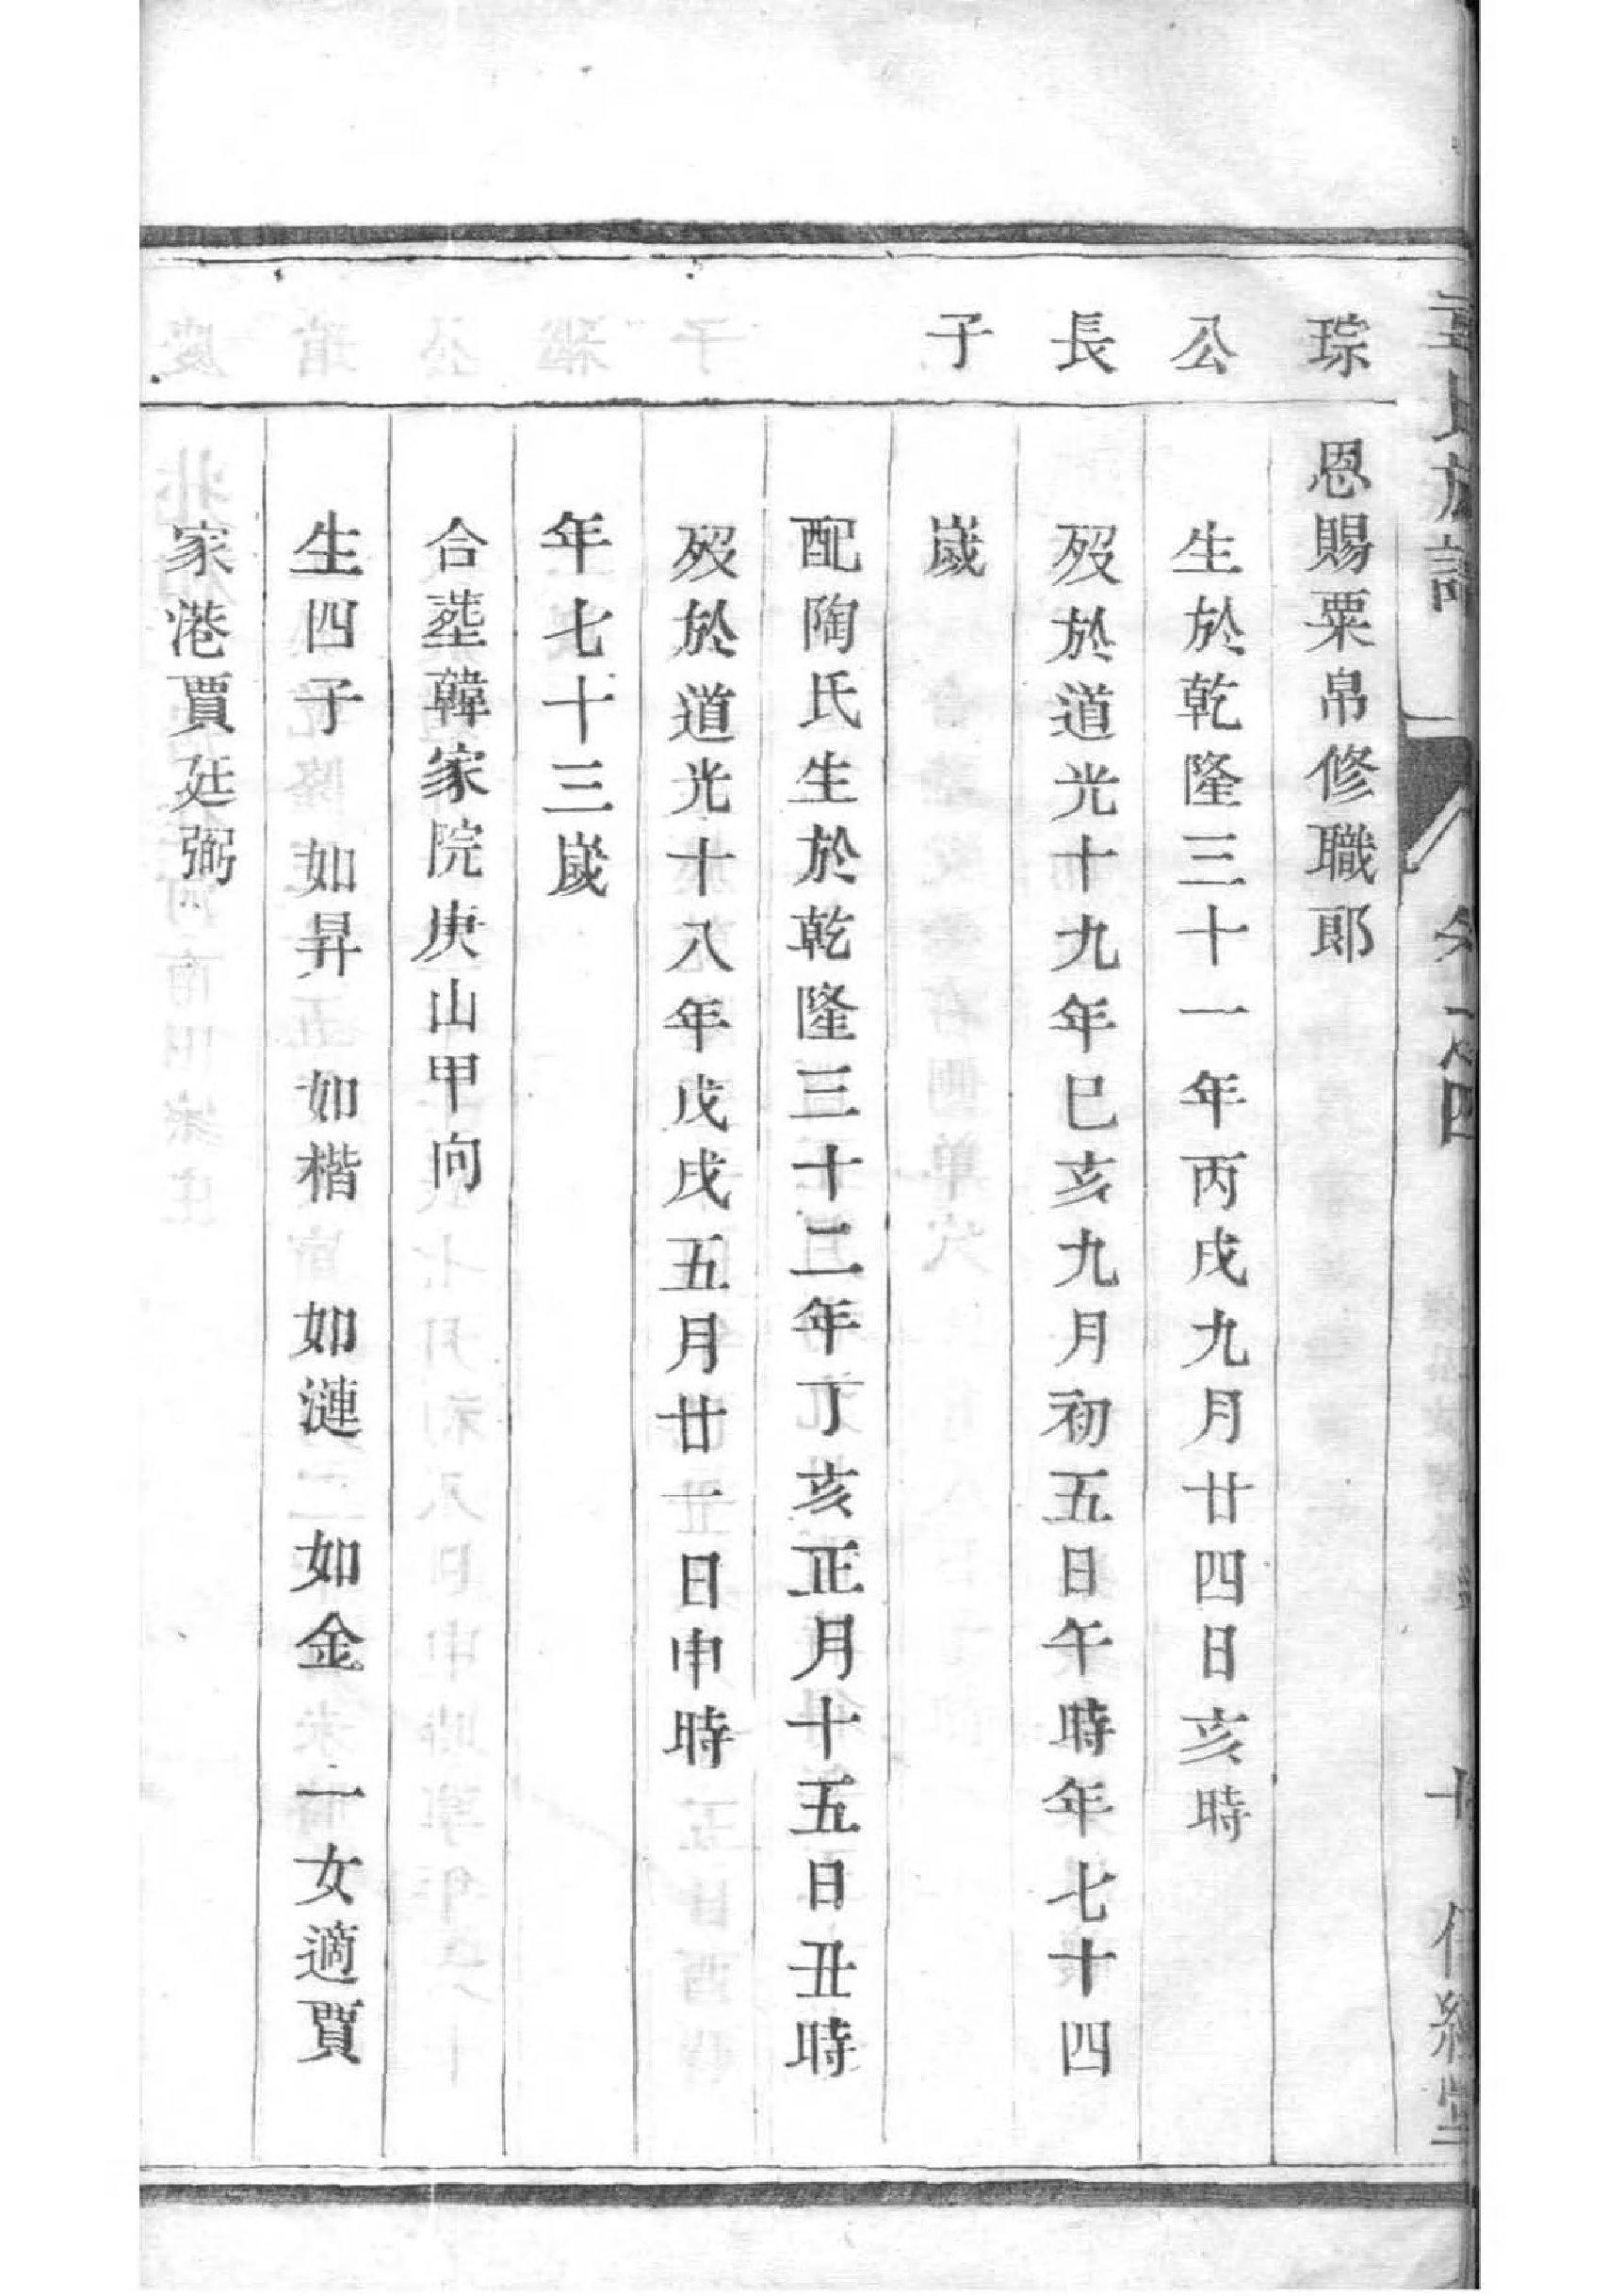 琮公長子
恩賜粟帛修職郎
生於乾隆三十一年丙戌九月廿四日亥時
歿於道光十九年巳亥九月初五日午時年七十四
嵗
配陶氏生於乾隆三十二年丁亥正月十五日丑時
歿於道光十八年戊戌五月廿一日申時
年七十三嵗
合塟韓家院庚山甲向
生四子 如昇 如楷 如漣 如金 一女適賈
家港賈廷弼